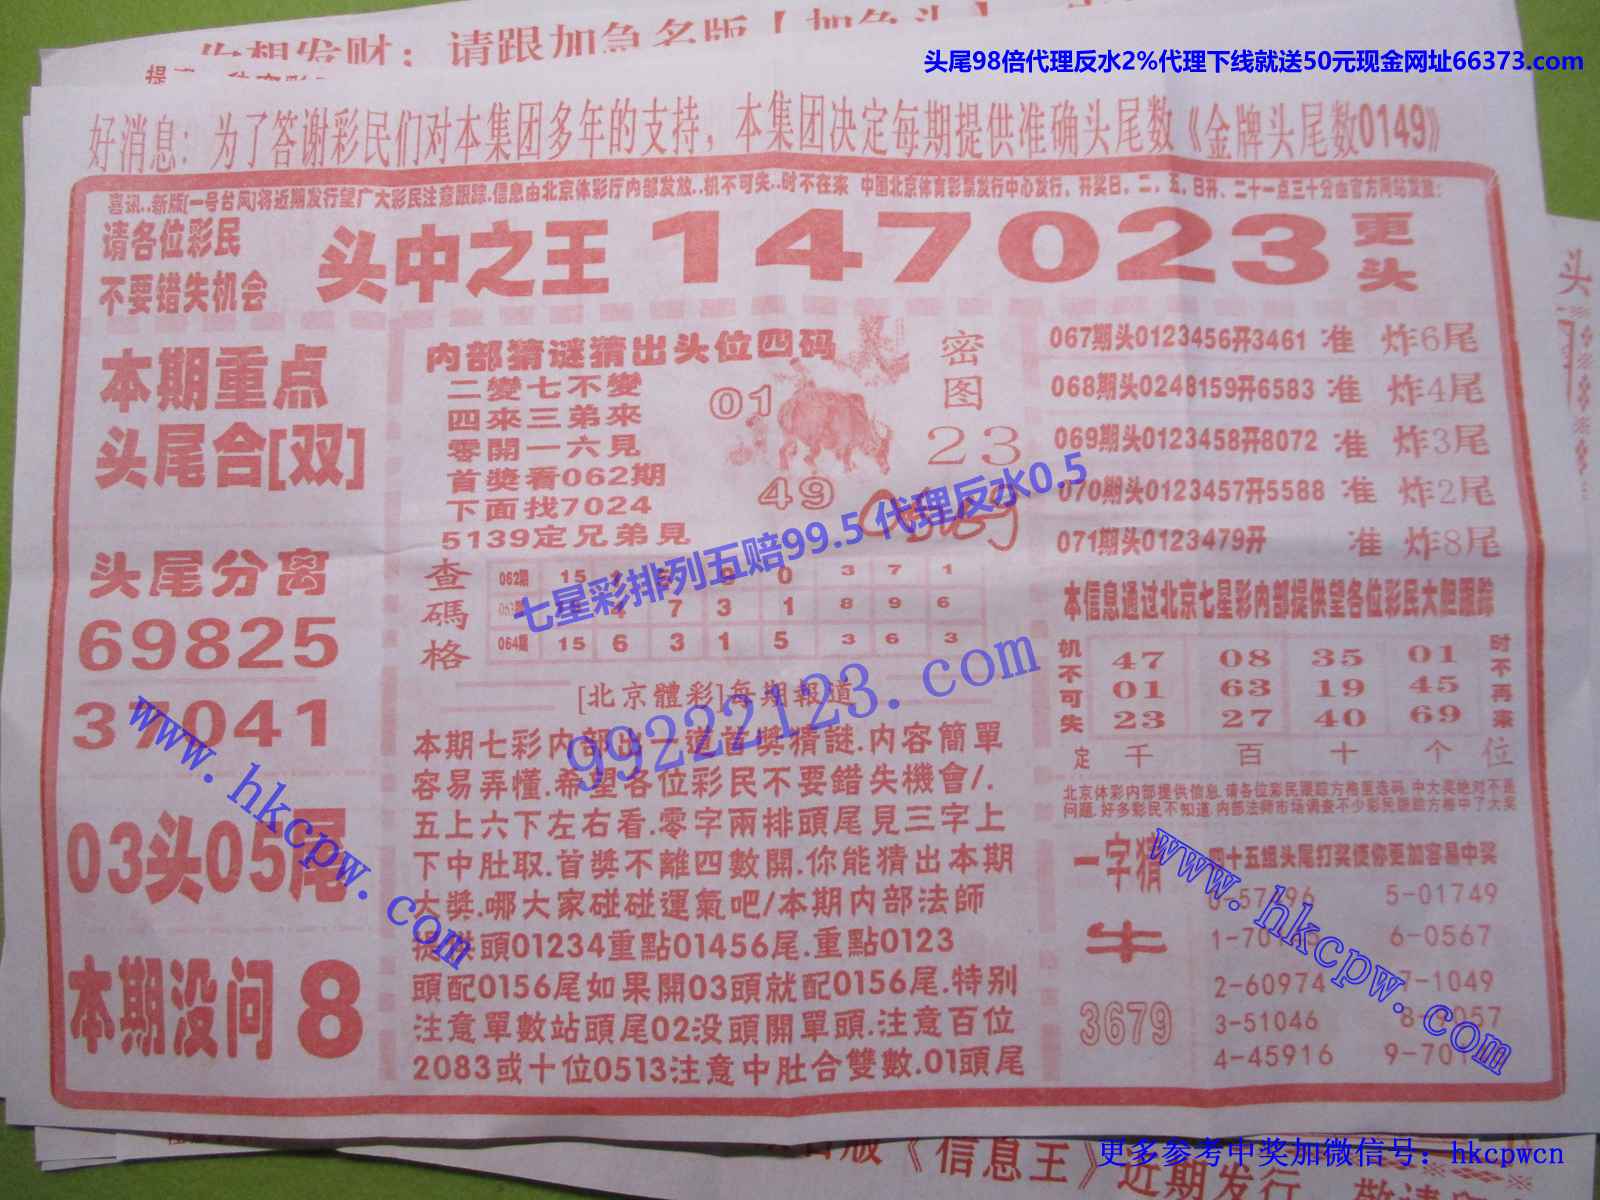 请跟加急名版
头尾98倍代理反水2%代理下线就送50元现金网址66373.com
好消息：为了答谢彩民们对本集团多年的支持，本集团决定每期提供准确头尾数《金牌头尾数0149》
喜讯..新版[一号台风]将近期发行望广大彩民注意跟踪.信息由北京体彩厅内部发放..机不可失..时不在来 中国北京体育彩票发行中心发行，开奖日，二，五，日开，二十一点三十分由官方网站发检：
请各位彩民
不要错失机会
头中之王 147023
更
头
本期重点
头尾合[双]
头尾分离
69825
37041
03头05尾
本期没问8
内部猜谜猜出头位四码
二變七不變
四來三弟來
零開一六見
首獎看062期
下面找7024
5139定兄弟見
01
49
密
图
23
查
碼
格
062期 15 0 0 3 7 1
4 7 3 1 8 9 6
064期 15 6 3 1 5 3 6 3
[北京體彩]每期報道
本期七彩内部出一道首獎猜謎.内容簡單
容易弄懂.希望各位彩民不要錯失機會/.
五上六下左右看.零字兩排頭尾見三字上
下中肚取.首獎不離四數開.你能猜出本期
大獎.哪大家碰碰運氣吧/本期内部法師
提供頭01234重點01456尾.重點0123
頭配0156尾如果開03頭就配0156尾.特别
注意單數站頭尾02没頭開單頭.注意百位
2083或十位0513注意中肚合雙數.01頭尾
067期头0123456开3461 准 炸6尾
068期头0248159开6583 准 炸4尾
069期头0123458开8072 准 炸3尾
070期头0123457开5588 准 炸2尾
071期头0123479开 准 炸8尾
本信息通过北京七星彩内部提供望各位彩民大胆跟踪
机不可失
47 08 35 01
01 63 19 45
23 27 40 69
时不再来
定 千 百 十 个 位
北京体彩内部提供信息.请各位彩民跟踪方格里选码.中大奖绝对不是
问题.好多彩民不知道.内部法师市场调查不少彩民跟踪方格中了大奖
一字猜
牛
3679
四十五组头尾打奖使你更加容易中奖
5-01749
6-0567
2-60974 7-1049
3-51046
4-45916
七星彩排列五赔99.5 代理反水0.5
99222123.com
www.hkcpw.com
www.hkcpw.com
《信息王》近期发行
更多参考中奖加微信号：hkcpwcn